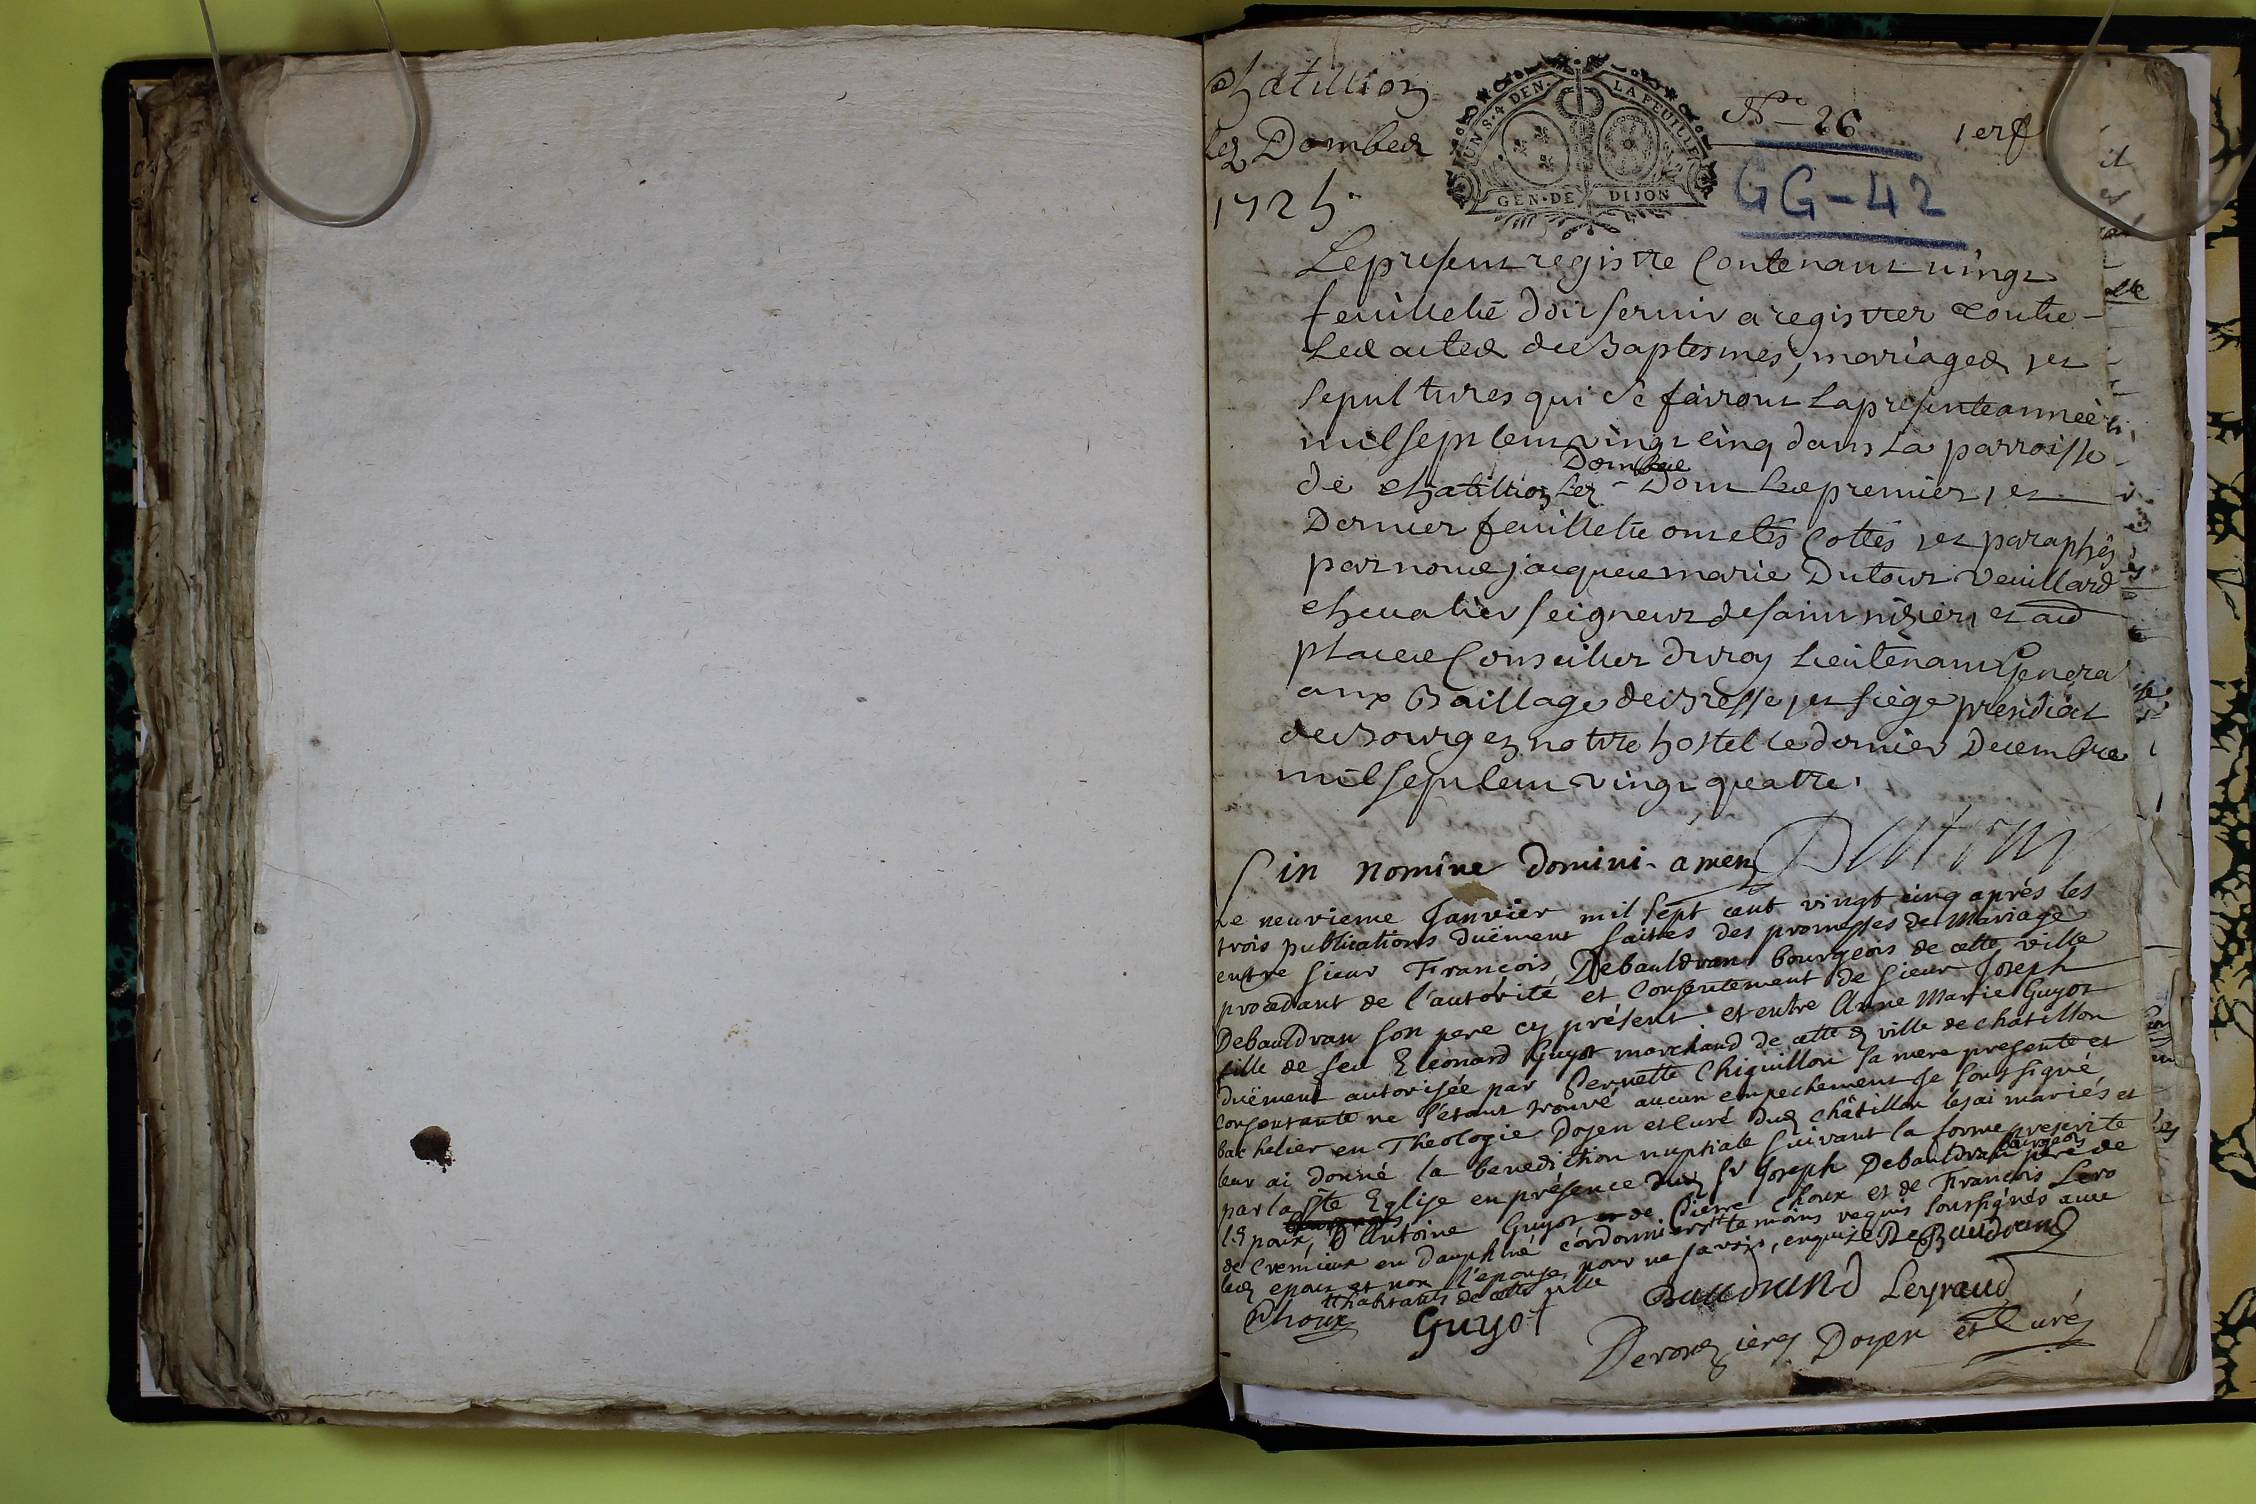 Chatillion
lez Dombes
1725.
UN S. 4 DEN. LA FEUILLE
GEN. DE DIJON
N° 26
1er f
GG-42
Le present registre Contenant vingt
feuilletz doit servir a registrer toutte
Les actes de Baptesmes, mariages, et
sepultures qui se fairont La presente annee
mil sept cent vingt cinq dans La parroisse
de Chatillion Lez Dombes Dont Le premier, et
Dernier feuilletz ont etés Cottés et paraphés
par nous jacques marie Dutour Veuillard
chevalier seigneur de saint nizier, et aud
places Conseiller du roy Lieutenant General
aux Baillage de Bresse, et siege presidial
de Bourg en notre hostel le dernier Decembre
mil sept cent vingt quatre.
Dutour
in nomine Domini amen
Le neuvieme Janvier mil sept cent vingt cinq aprés les
trois publications duëment faittes des promesses de Mariage
entre sieur François Debauldran bourgeois de cette ville
procedant de l'autorité et Consentement de sieur Joseph
Debauldran son pere cy présent et entre Anne Marie Guyot
fille de feu Eleonard Guyot marchand de cette d ville de chatillon
duëment autorisée par Pernette Chiquillon sa mere presente et
consentante ne s'étant trouvé aucun empechement Je soussigné
bachelier en Theologie Doyen et Curé dud châtillon les ai mariés et
leur ai donné la benediction nuptiale suivant la forme prescrite
par la Ste Eglise en présence dud Sr Joseph Debauldran bourgeois père de
l'Epoux, d'Antoine Guyot de Pierre Choux et de François Lero
de Cremieux en dauphiné cordonniers tt temoins requis soussignés avec
led epoux et non l'epouse pour ne savoir, enquise DeBaudrand
tt habitants de cette ville
Baudrand Leyraud
Choux Guyot
Derorzierz Doyen et Curé